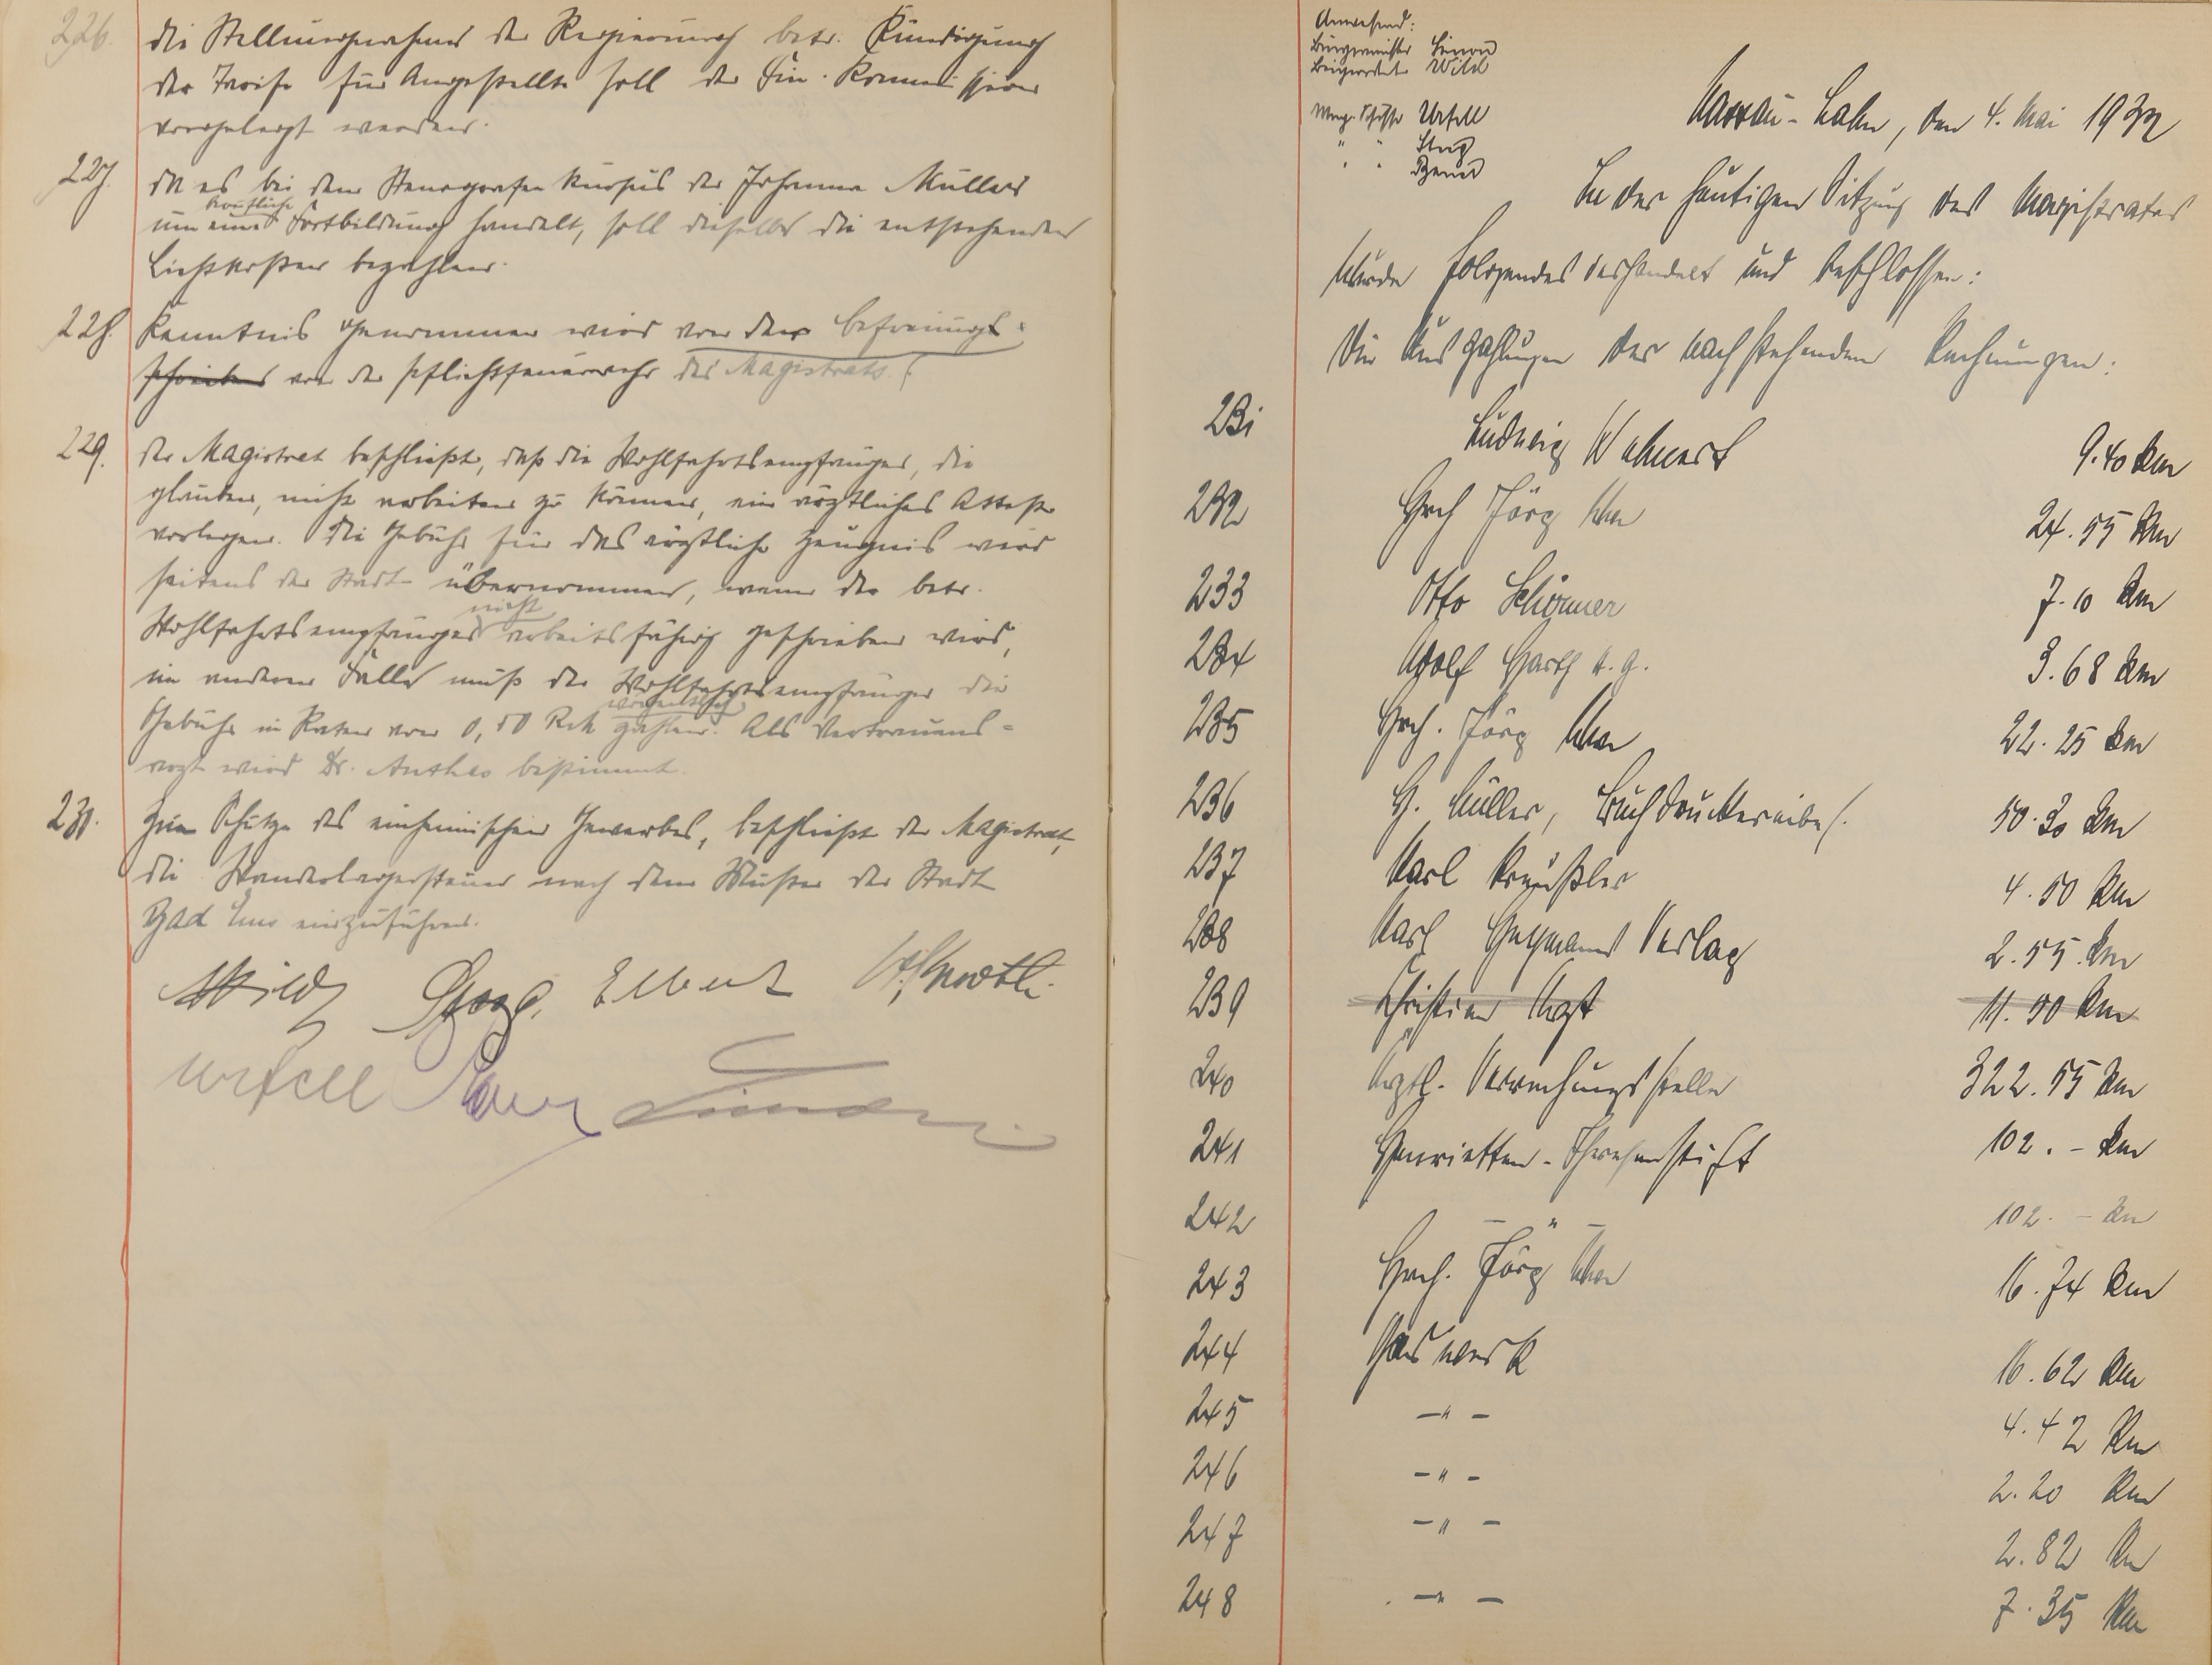 226. Die Stellungnahme der Regierung betr. Kündigung
der Tarife für Angestellte soll der Fin. Kommission
vorgelegt werden.
227. Da es bei dem Stenografenkursus der Johanna Müller
berufliche
um eine Fortbildung handelt, soll dieselbe die entstehenden
Lichtkosten bezahlen.
228. Kenntnis genommen wird von der Befreiungs-
schreibens von der Pflichtfeuerwehr des Magistrats.
229. Der Magistrat beschließt, daß die Wohlfahrtsempfänger, die
glauben, nicht arbeiten zu können, ein ärztliches Attest
vorlegen. Die Gebühr für das ärztliche Zeugnis wird
seitens der Stadt übernommen, wenn der betr.
nicht
Wohlfahrtsempfänger arbeitsfähig geschrieben wird,
im anderen Falle muß der Wohlfahrtsempfänger die
wöchentlich
Gebühr in Raten von 0,50 RM zahlen. Als Vertrauens-
arzt wird Dr. Anthes bestimmt.
230. Zum Schutze des einheimischen Gewerbes, beschließt der Magistrat,
die Wanderlagersteuer nach dem Muster der Stadt
Bad Ems einzuführen.
Wild
Urfell
Anwesend:
Bürgermeister
Beigeordnete Wild
Mag. Schöffe Urfell
" "
" "
Nassau-Lahn, den 4. Mai 1932
In der heutigen Sitzung des Magistrates
wurde folgendes verhandelt und beschlossen:
Die Auszahlungen der nachstehenden Rechnungen:
231 Ludwig 9.40 Rm
232 Hch Jörg Wwe 24.55 Rm
233 Otto 7.10 Rm
234 Adolf 3.68 Rm
235 Hch. Jörg Wwe 22.25 Rm
236 H. Müller, Buchdruckereibes. 50.30 Rm
237 Karl Kreußler 4.50 Rm
238 Karl Heymanns Verlag 2.55 Rm
239 Christian 11.50 Rm
240 Ärztl. Verrechnungsstelle 322.55 Rm
241 Henrietten-Theresenstift 102.- Rm
242 - " - 102.- Rm
243 Hch. Jörg Wwe 16.74 Rm
244 Gaswerk 16.62 Rm
245 - " - 4.42 Rm
246 - " - 2.20 Rm
247 - " - 2.82 Rm
248 - " - 7.35 Rm